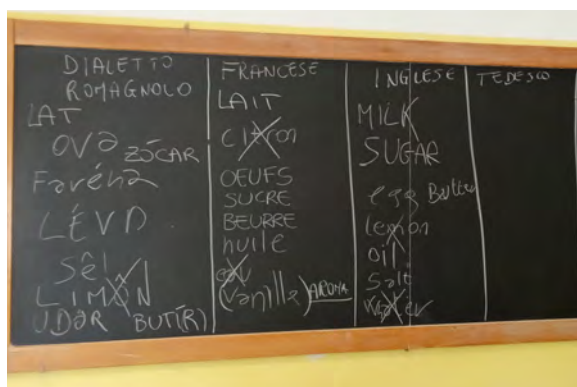 DIALETTO
ROMAGNOLO
LAT
OVƏ ZÓCAR
Faréna
LÉVD
Sêl
LIMÓN
UDÓR BUTÍR)
FRANCESE
LAIT
citron
OEUFS
SUCRE
BEURRE
huile
eau
(vanille) AROMA
INGLESE
MILK
SUGAR
egg Butter
lemon
oil
Salt
water
TEDESCO